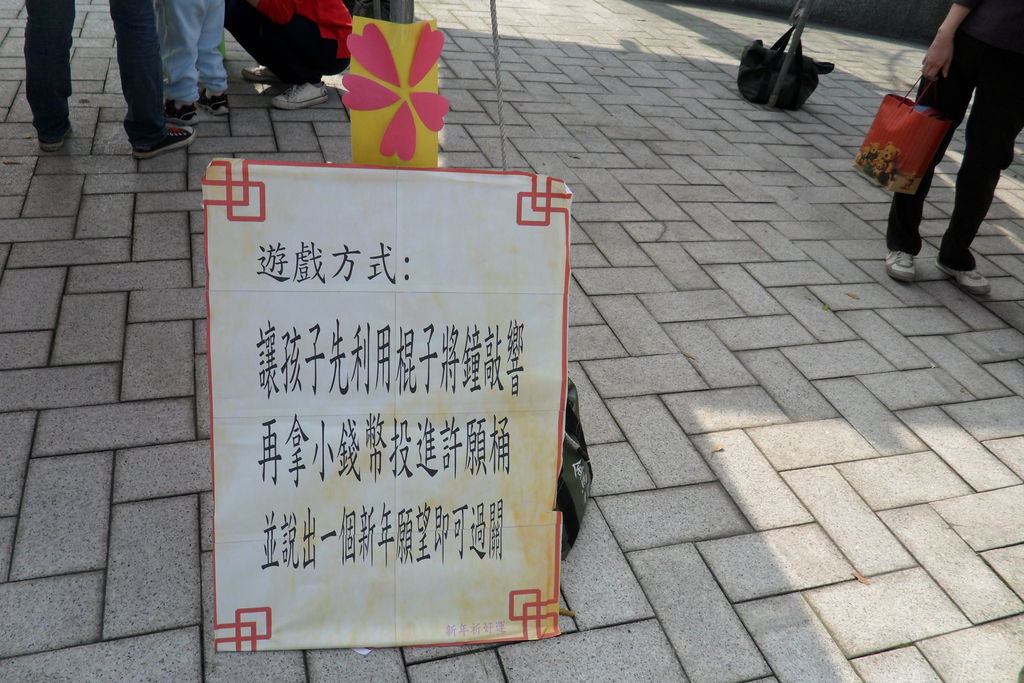 遊戲方式:
讓孩子先利用棍子將鐘敲響
再拿小錢幣投進許願桶
並說出一個新年願望即可過關
新年祈好運